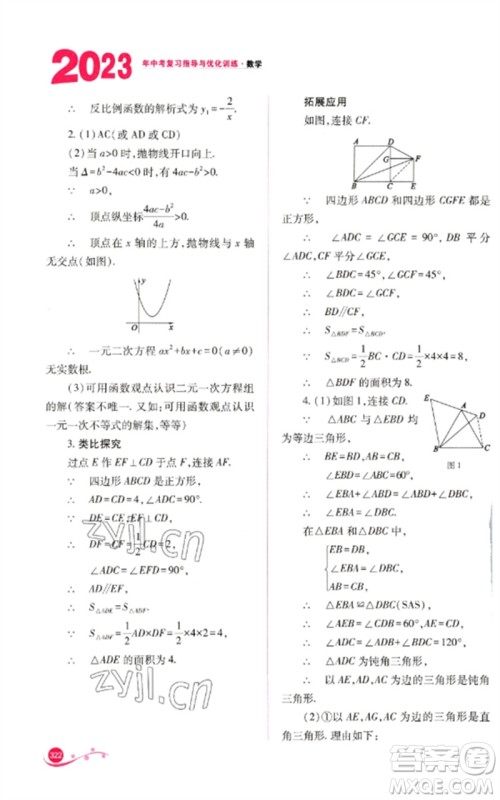 2023 年中考复习指导与优化训练·数学
∴ 反比例函数的解析式为 y₁=-2/x.
2. (1)AC(或 AD 或 CD)
(2)当 a>0 时,抛物线开口向上.
当 Δ=b²-4ac<0 时,有 4ac-b²>0.
∵ a>0,
∴ 顶点纵坐标(4ac-b²)/4a>0.
∴ 顶点在 x 轴的上方,抛物线与 x 轴
无交点(如图).
O x
∴ 一元二次方程 ax²+bx+c=0 (a≠0)
无实数根.
(3)可用函数观点认识二元一次方程组
的解(答案不唯一. 又如:可用函数观点认识
一元一次不等式的解集,等等)
3. 类比探究
过点 E 作 EF⊥CD 于点 F,连接 AF.
∵ 四边形 ABCD 是正方形,
∴ AD=CD=4,∠ADC=90°.
∵ DE=CE,EF⊥CD,
∴ DF=CF=1/2CD=2,
∠ADC=∠EFD=90°.
∴ AD∥EF.
∴ S△ADE=S△ADF.
∴ S△ADE=1/2AD×DF=1/2×4×2=4.
∴ △ADE 的面积为 4.
322
拓展应用
如图,连接 CF.
A D G F B C E
∵ 四边形 ABCD 和四边形 CGFE 都是
正方形,
∴ ∠ADC = ∠GCE = 90°, DB 平分
∠ADC,CF 平分∠GCE.
∴ ∠BDC=45°,∠GCF=45°.
∴ BD∥CF.
∴ S△BDF=S△BDC.
∴ S△BDF=1/2BC·CD=1/2×4×4=8,
∴ △BDF 的面积为 8.
4. (1)如图 1,
∵ △ABE 和△CBD 均
为等边三角形,
A B C
图 1
∴ BE=BD,AB=BC,
∠EBD=∠ABC=60°,
∴ ∠EBA=∠DBC.
在△EBA 和△DBC 中,
EB=DB,
∠EBA=∠DBC,
AB=BC,
∴ △EBA≌△DBC(SAS).
∴ ∠EBA=∠DBC,
∴ ∠ADB+∠CDB=120°,
∴ △ADC 为钝角三角形.
∴ 以 AE、AD、CD 为边的三角形是钝角
三角形.
(2)①以 AE、AD、CD 为边的三角形是
直角三角形. 理由如下:
zyjl.cn
zyjl.cn
答案圈
MXQE.COM